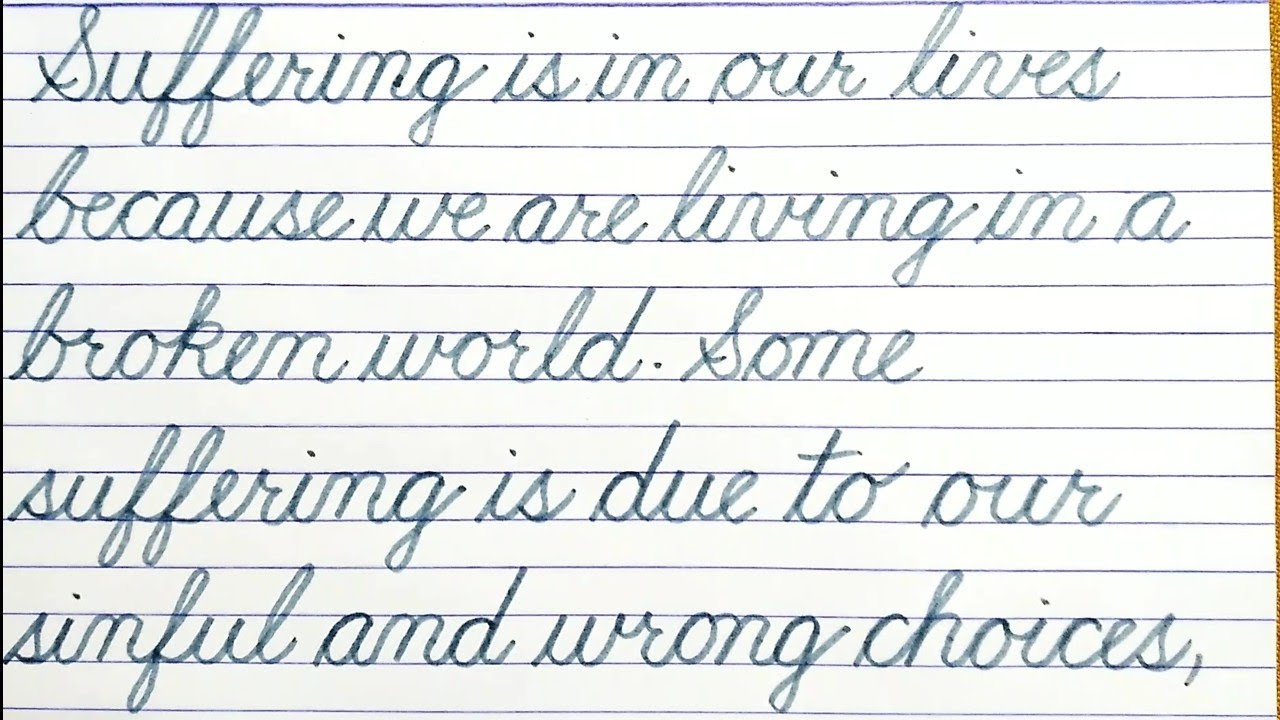 Suffering is in our lives
because we are living in a
broken world. Some
suffering is due to our
sinful and wrong choices,